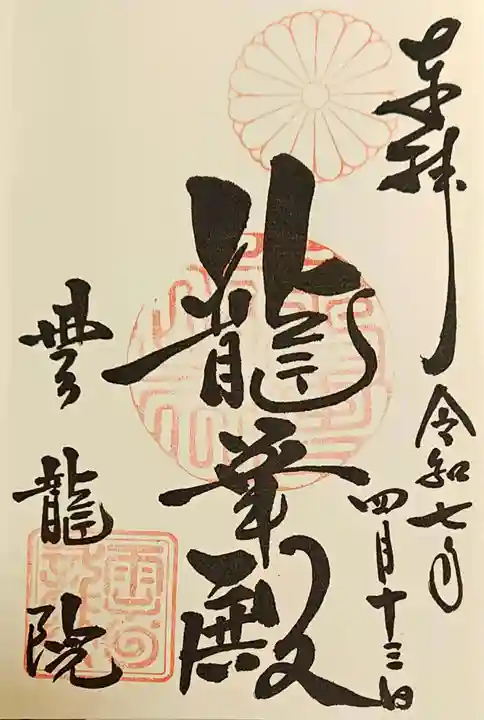 奉拝
令和七年
四月十三日
龍華殿
雲龍院